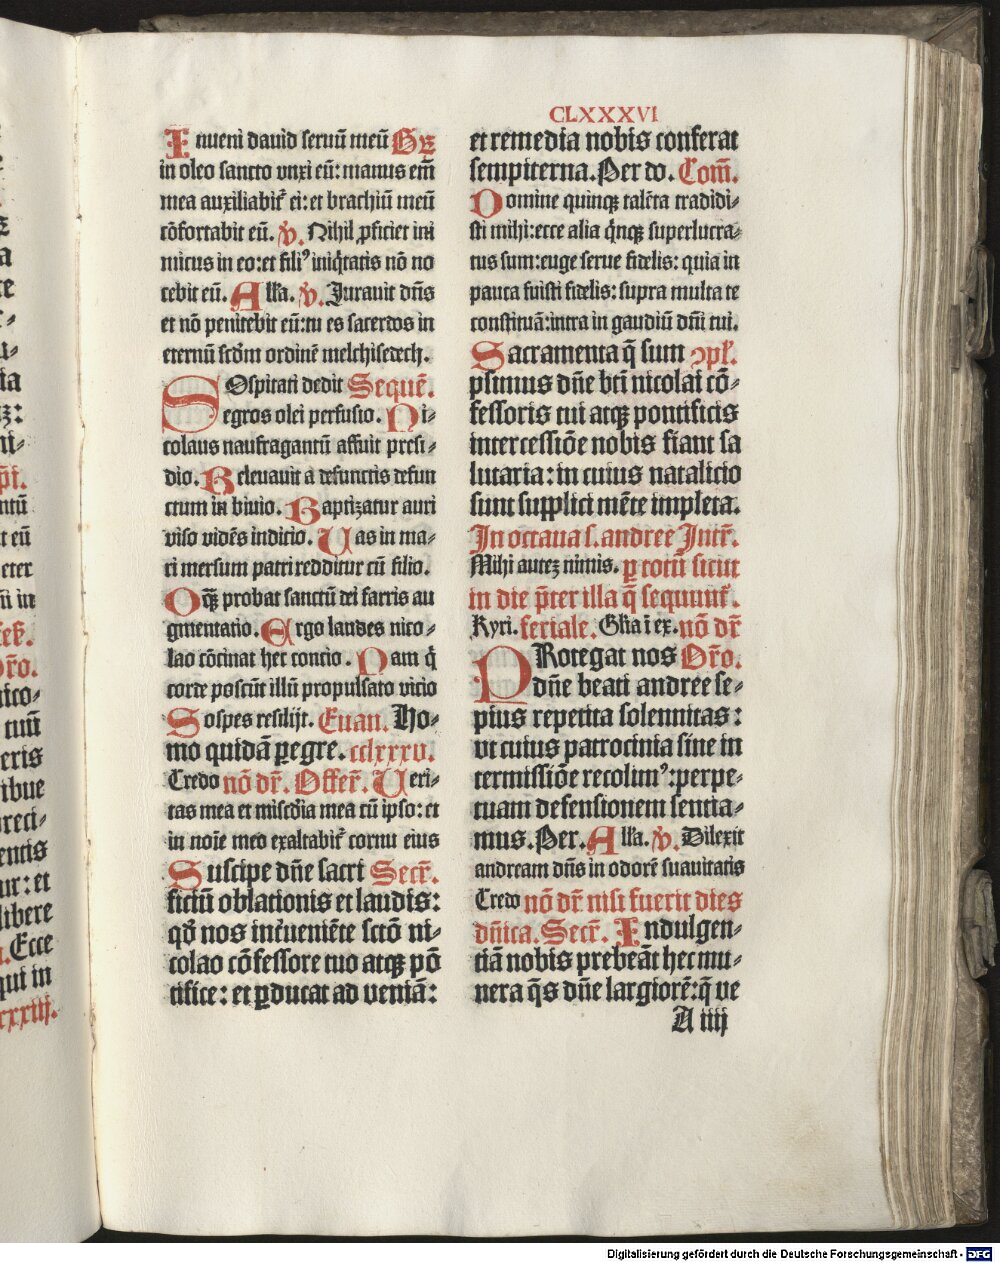 CLXXXVI
Inueni dauid seruū meū Gr̄
in oleo sancto vnxi eū: manus em̄
mea auxiliabit͛ ei: et brachiū meū
cōfortabit eū. ꝟ. Nihil ꝓficiet ini
micus in eo: et filiꝰ iniq̇tatis nō no
cebit eū. Alľa. ꝟ. Jurauit dn̄s
et nō penitebit eū: tu es sacerdos in
eternū scd̄m ordinē melchisedech.
SOspitati dedit Sequē.
egros olei perfusio. Ni-
colaus naufragantū affuit presi-
dio. Releuauit a defunctis defun
ctum in biuio. Baptizatur auri
viso vidēs inditio. Uas in ma-
ri mersum patri redditur cū filio.
Oq̄ꝫ probat sanctū dei farris au
gmentatio. Ergo laudes nico-
lao cōcinat hec concio. Nam q̇
corde poscūt illū propulsato vicio
Sospes resilijt. Euan. Ho-
mo quidā ꝑegre. cclxxxv.
Credo nō dr̄. Offer̄. Ueri-
tas mea et miscd̄ia mea cū ipso: et
in noīe meo exaltabit͛ cornu eius
Suscipe dn̄e sacri Secr̄.
ficiū oblationis et laudis:
qđ nos int͛ueniēte sctō ni-
colao cōfessore tuo atqꝫ pō
tifice: et ꝑducat ad veniā:
et remedia nobis conferat
sempiterna. Per do. Com̄.
Domine quinqꝫ talēta tradidi-
sti mihi: ecce alia q̇nqꝫ superlucra-
tus sum: euge serue fidelis: quia in
pauca fuisti fidelis: supra multa te
constituā: intra in gaudiū dn̄i tui.
Sacramenta q̄ sum ꝯpľ.
psimus dn̄e bti nicolai cō-
fessoris tui atqꝫ pontificis
intercessiōe nobis fiant sa
lutaria: in cuius natalicio
sunt supplici mēte impleta.
In octaua s. andree Intr̄.
Mihi autez nimis. ꝑ totū sicut
in die p̄ter illa q̄ sequunt͛.
Kyri. feriale. Gľia ī ex. nō dr̄
PRotegat nos Or̄o.
dn̄e beati andree se-
pius repetita solennitas:
vt cuius patrocinia sine in
termissiōe recolimꝰ: perpe-
tuam defensionem sentia-
mus. Per. Alľa. ꝟ. Dilexit
andream dn̄s in odorē suauitatis
Credo nō dr̄ nisi fuerit dies
dn̄ica. Secr̄. Indulgen-
tiā nobis prebeāt hec mu-
nera q̄s dn̄e largiorē: q̄ ve
A iiij
Digitalisierung gefördert durch die Deutsche Forschungsgemeinschaft - DFG